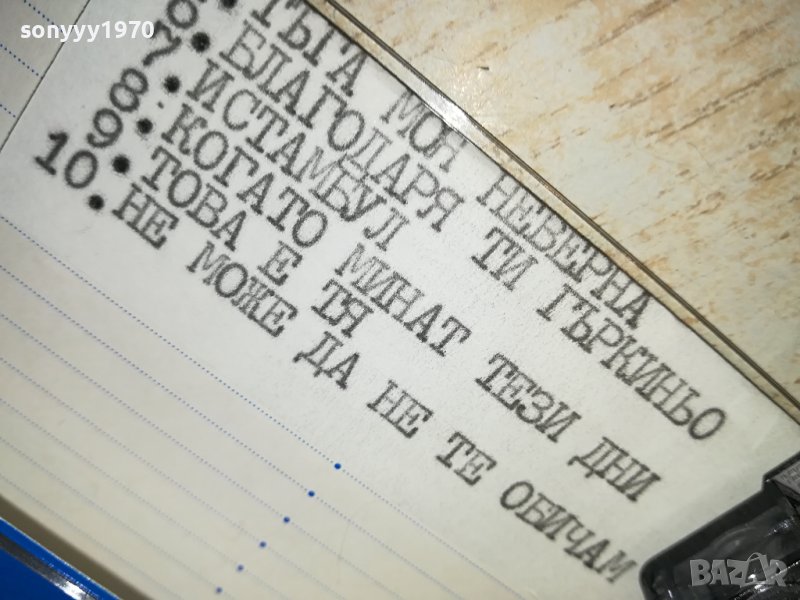 sonyyy1970
6. ТЪГА МОЯ НЕВЕРНА
7. БЛАГОДАРЯ ТИ ГЪРКИНЬО
8. ИСТАМБУЛ
9. КОГАТО МИНАТ ТЕЗИ ДНИ
10. ТОВА Е ТЯ
НЕ МОЖЕ ДА НЕ ТЕ ОБИЧАМ
BAZAR